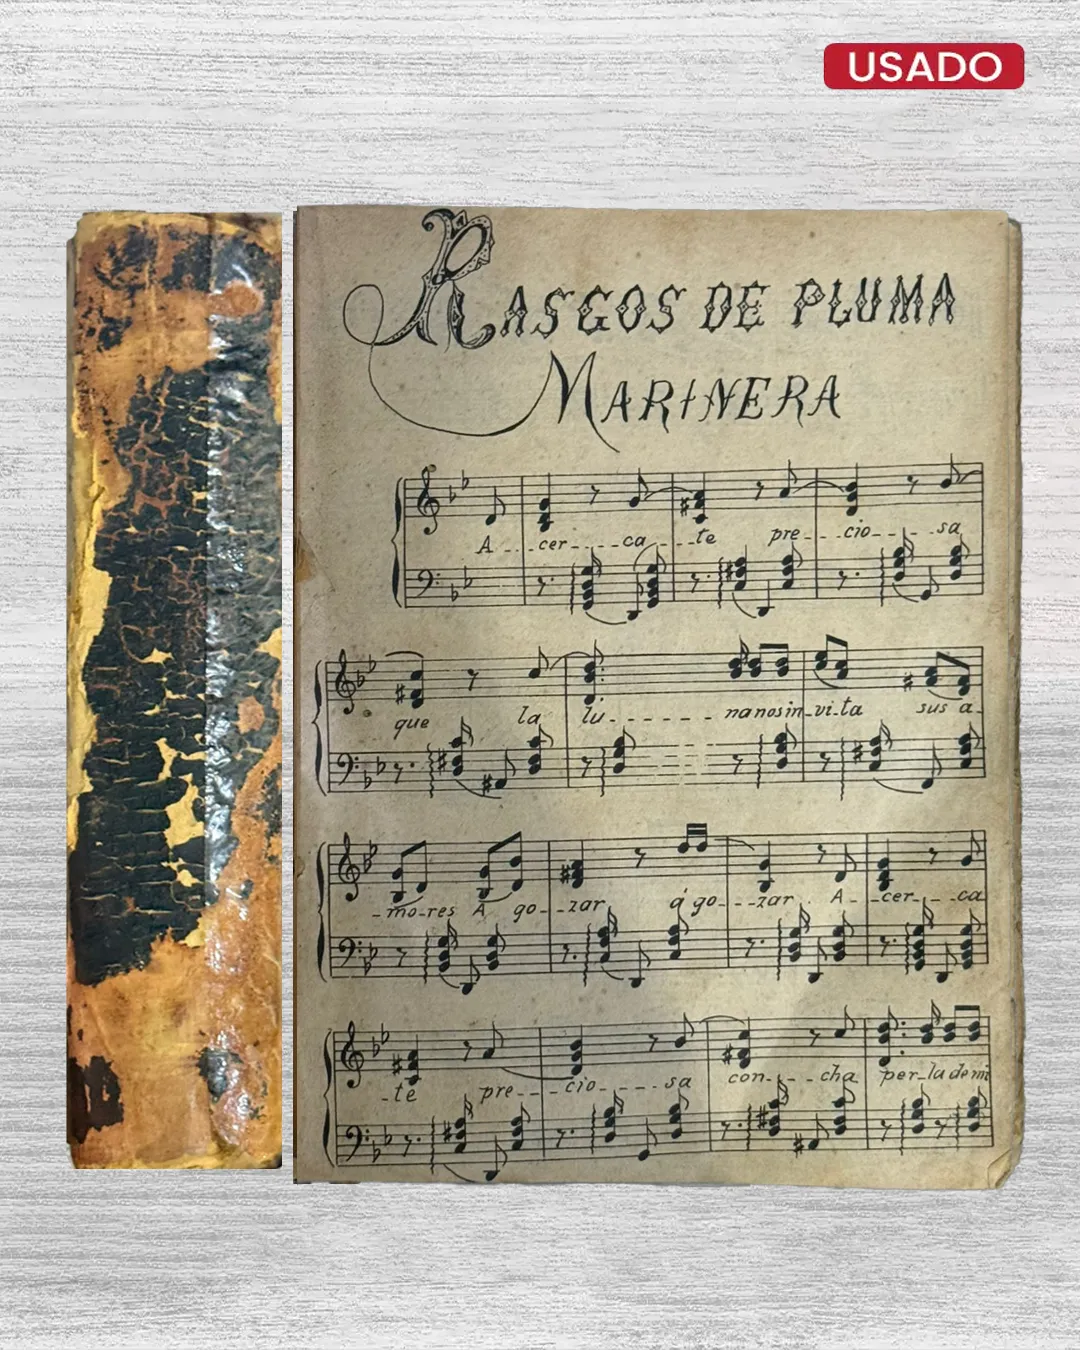 USADO
RASGOS DE PLUMA
MARINERA
A - - - cer - - - - ca - - - te pre - - - cio - - - - sa
que la lu - - - - - - nanosin-vi-ta sus a-
-mo-res A go--zar á go---zar. A--cer---ca
-te pre---cio----sa con----cha per-la de mi